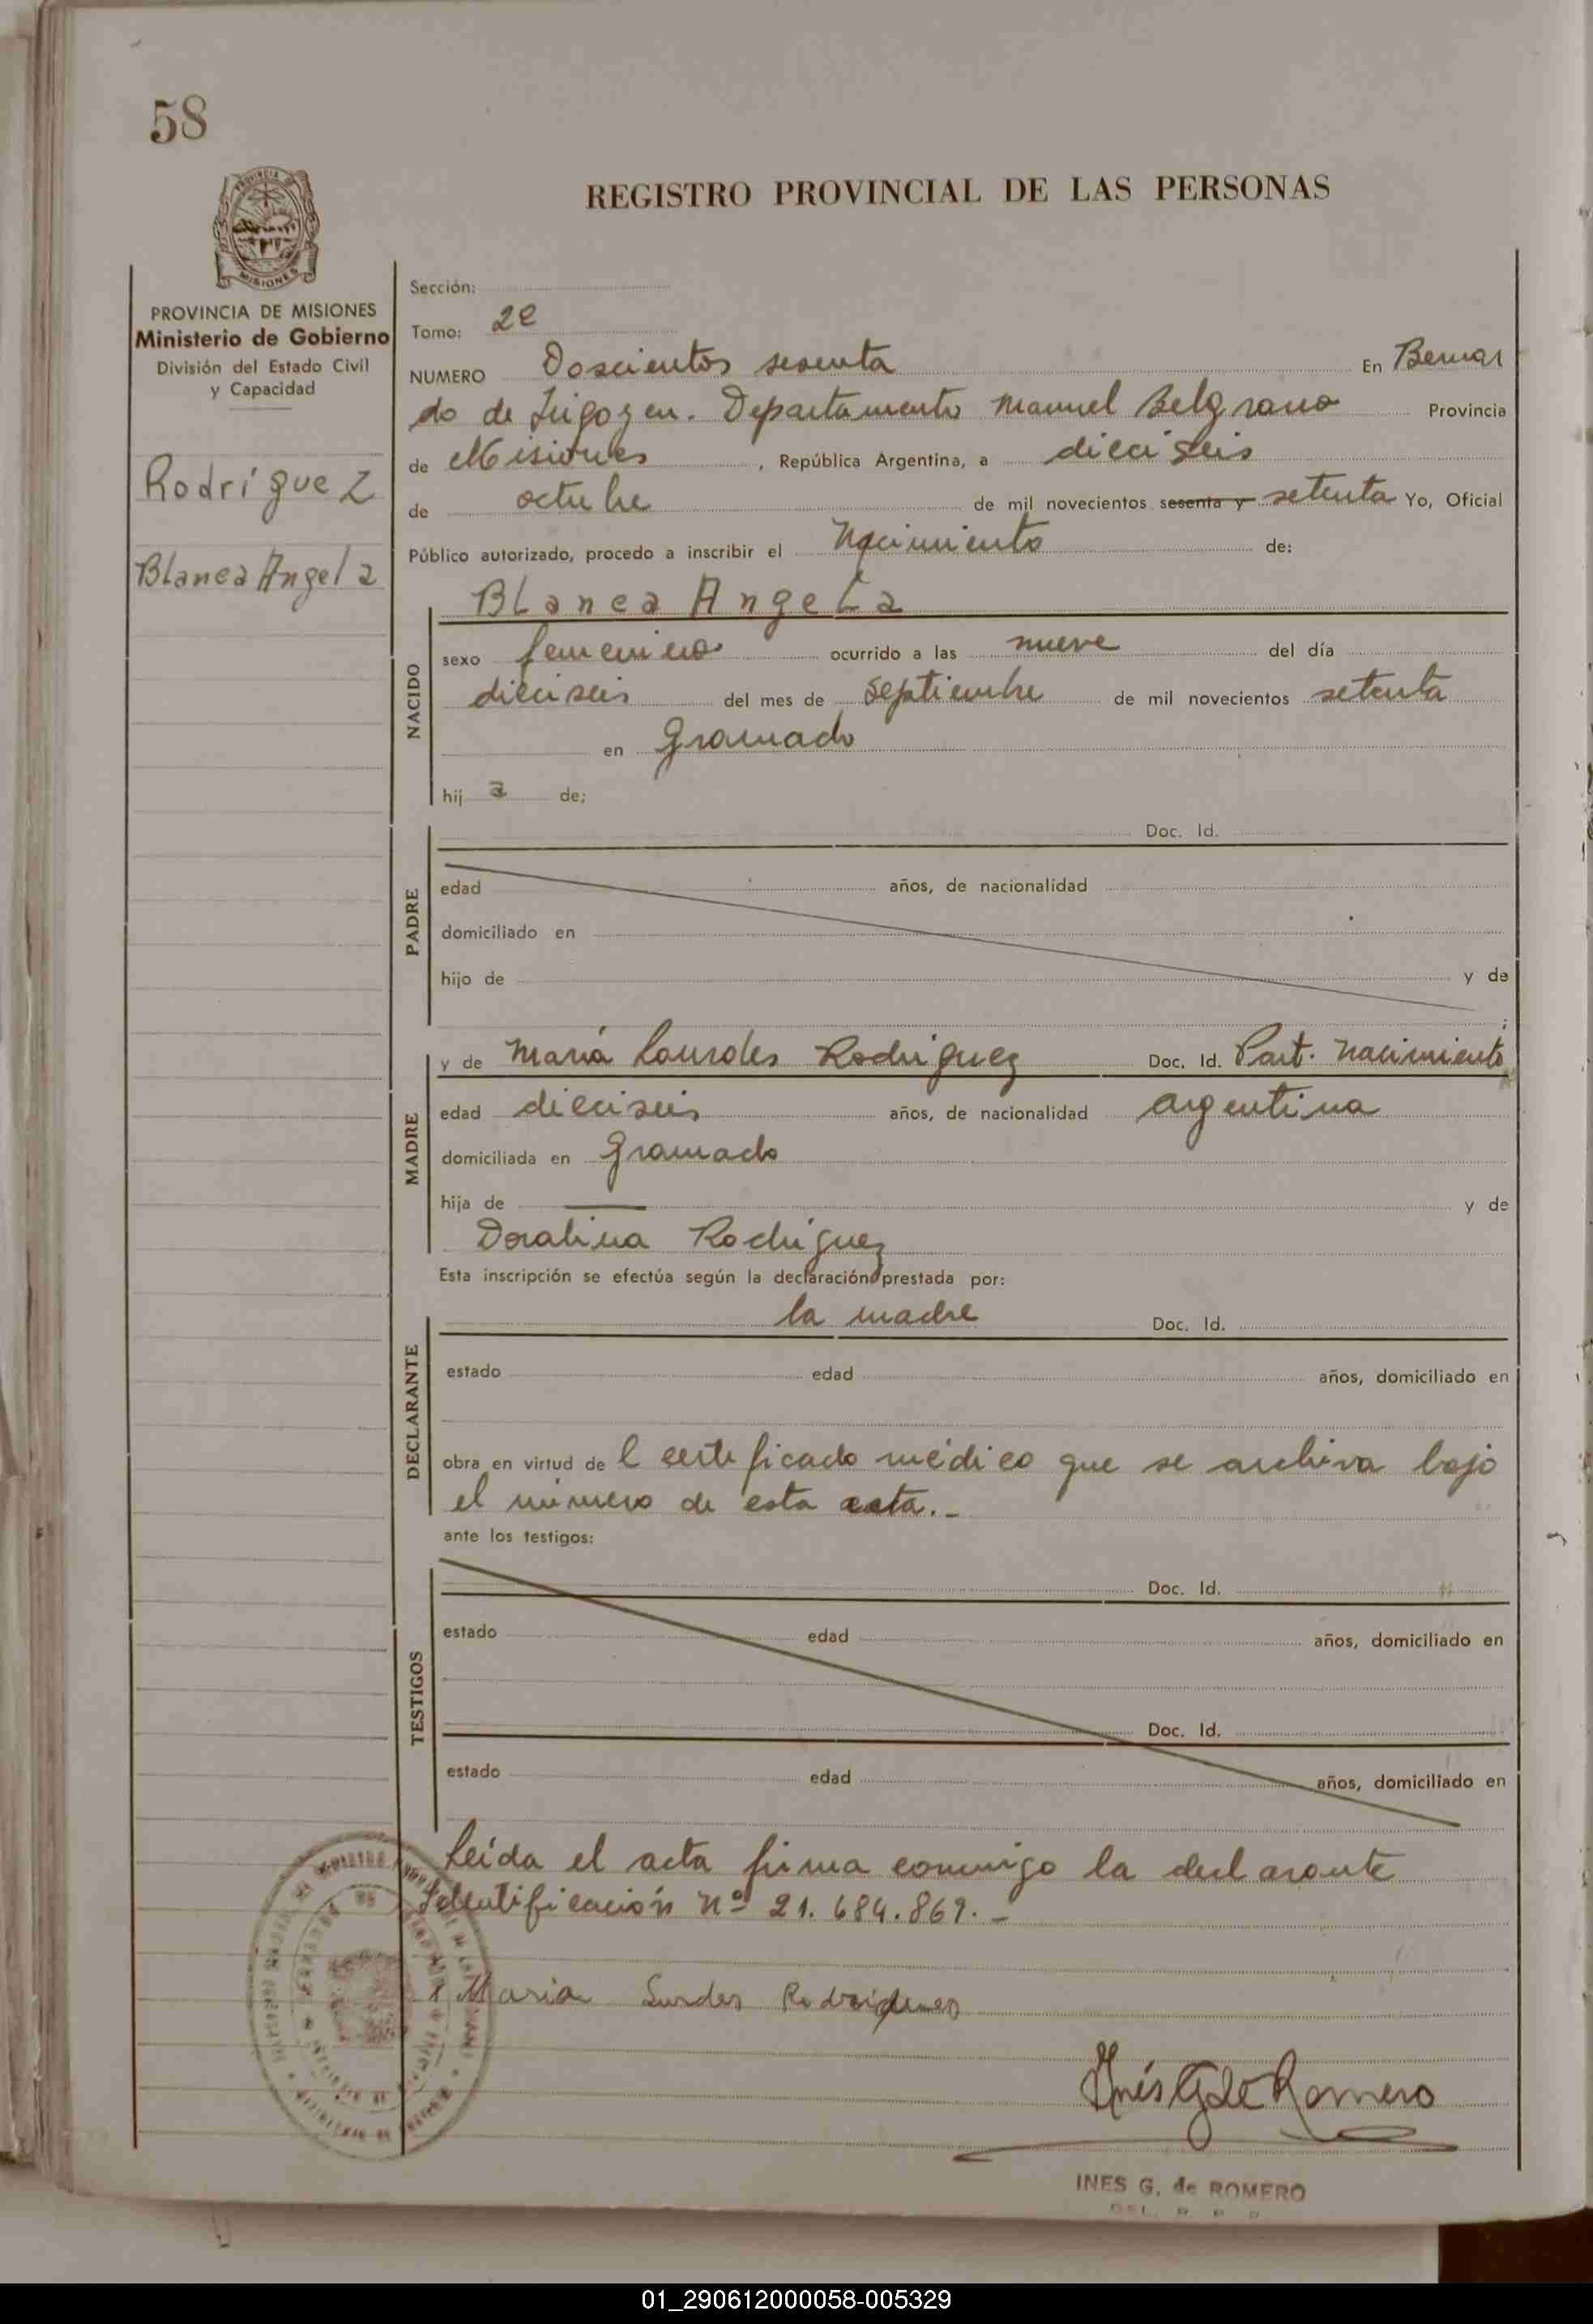 58
REGISTRO PROVINCIAL DE LAS PERSONAS
PROVINCIA DE MISIONES
Ministerio de Gobierno
División del Estado Civil
y Capacidad
Rodríguez
Blanca Angela
Sección:
Tomo: 2º
NUMERO Doscientos sesenta En Bernar
do de Irigoyen. Departamento Manuel Belgrano Provincia
de Misiones, República Argentina, a dieciseis
de octubre de mil novecientos sesenta y setenta Yo, Oficial
Público autorizado, procedo a inscribir el Nacimiento de:
Blanca Angela
NACIDO
sexo femenino ocurrido a las nueve del día
dieciseis del mes de septiembre de mil novecientos setenta
en Gramado
hij a de;
PADRE
Doc. Id.
edad años, de nacionalidad
domiciliado en
hijo de y de
;
MADRE
y de María Lourdes Rodriguez Doc. Id. Part. Nacimiento
edad dieciseis años, de nacionalidad argentina
domiciliada en Gramado
hija de — y de
Doralina Rodriguez
Esta inscripción se efectúa según la declaración prestada por:
DECLARANTE
la madre Doc. Id.
estado edad años, domiciliado en
obra en virtud de l certificado médico que se archiva bajo
el número de esta acta.-
ante los testigos:
TESTIGOS
Doc. Id.
estado edad años, domiciliado en
Doc. Id.
estado edad años, domiciliado en
Leída el acta firma conmigo la declarante
Identificación Nº 21.684.869.-
Maria Lurdes Rodrigues
Inés G de Romero
INES G. de ROMERO
01_290612000058-005329